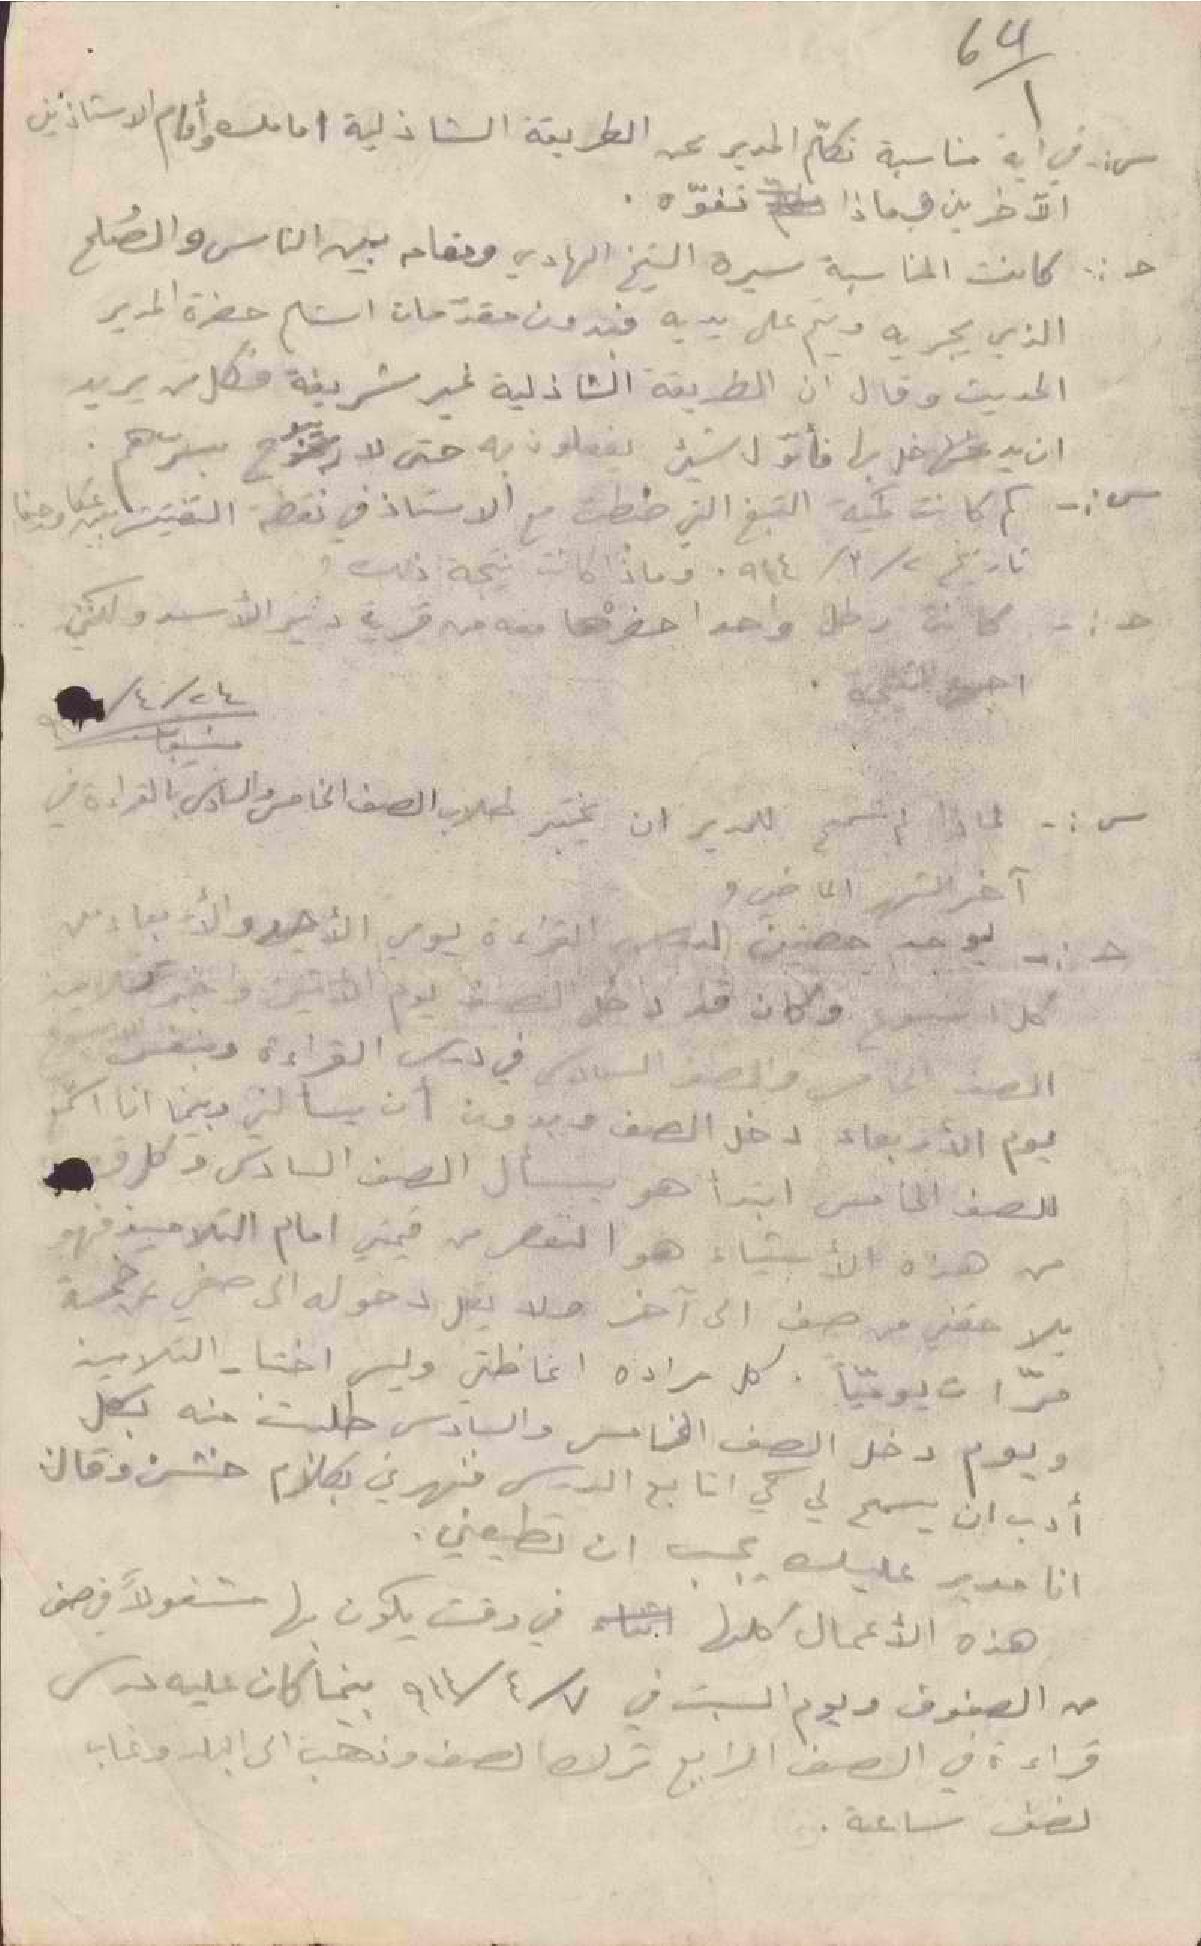 64
١
س :- في أية مناسبة تكلّم المدير عن الطريقة الشاذلية امامك وأمام الاستاذين
الآخرين وبماذا تفوّه .
ج :- كانت المناسبة سيرة الشيخ الهادي ومقامه بين الناس والصُلح
الذي يجريه ويتم على يديه فبدون مقدّمات استلم حضرة المدير
الحديث وقال ان الطريقة الشاذلية غير شريفة فكل من يريد
ان يدخل بها فأوّل شيئ يفعلون به حتى لا يبوح بسرّهم .
س :- كم كانت كمية التبغ التي ضُبطت مع الاستاذ في نقطة التفتيش بين عكا وحيفا
تاريخ ٢ / ٣ / ٩٤٤ . وماذا كانت نتيجة ذلك ؟
ج :- كانت رطل واحد احضرها معه من قرية دير الأسد ولكني
اجهل النتيجة .
٢٤ / ٤ /
س :- لماذا لم تسمح للمدير ان يختبر طلاب الصف الخامس والسادس بالقراءة في
آخر الشهر الماضي ؟
ج :- يوجد حصتين لدرس القراءة يومي الأحد والأربعاء من
كل اسبوع وكان قد داخل الصف يوم الاثنين واختبر تلاميذ
الصف الخامس والصف السادس في درس القراءة وبنفس الاسبوع
يوم الأربعاء دخل الصف وبدون أن يسألني وبينما انا اسمّع
للصف الخامس ابدأ هو يسأل الصف السادس وكل
من هذه الأشياء هو النقص من قيمتي امام التلاميذ فهو
يلاحقني من صف الى آخر ولا يقل دخوله الى صفي عن خمسة
مرّات يوميّاً . كل مراده اغاظتي وليس اختبار التلاميذ
ويوم دخل الصف الخامس والسادس طلبت منه بكل
أدب ان يسمح لي كي اتابع الدرس فنهرني بكلام خشن وقال:
انا مدير عليك يجب ان تطيعني .
هذه الأعمال كلها في وقت يكون بها مشغولاً في صف
من الصفوف ويوم السبت في ٧ / ٤ / ٩٤٤ بينما كان عليه درس
قراءة في الصف الرابع ترك الصف وذهب الى البلد وغاب
نصف ساعة .